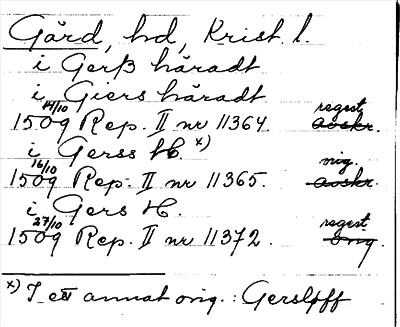 Gärd, hd, Krist. l.
i Gerß häradt
i Giers häradt
14/10 regest.
1509 Rep. II nr 11364. avskr.
i Gerss H. x)
16/10 orig.
1509 Rep. II nr 11365. avskr.
i Gers H.
27/10 regest.
1509 Rep. II nr 11372. orig.
x) I ett annat orig.: Gersløff